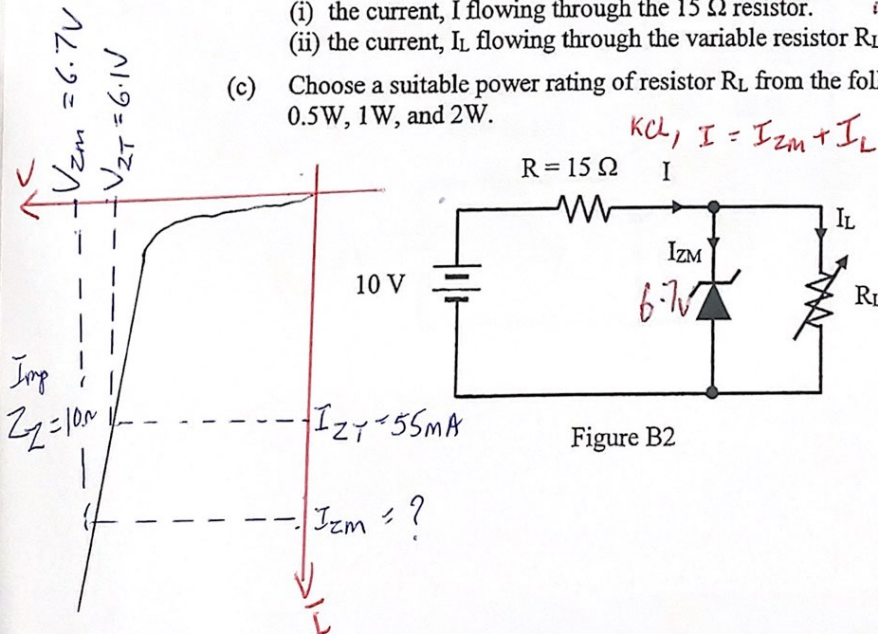 (i) the current, I flowing through the 15 Ω resistor.
(ii) the current, IL flowing through the variable resistor RL
(c) Choose a suitable power rating of resistor RL from the fol
0.5W, 1W, and 2W.
KCL, I = IZM + IL
VZM = 6.7V
VZT = 6.1V
V
R = 15 Ω
I
IL
IZM
10 V
6.7V
RL
Imp
ZZ = 10Ω
IZT = 55mA
Figure B2
IZM = ?
I